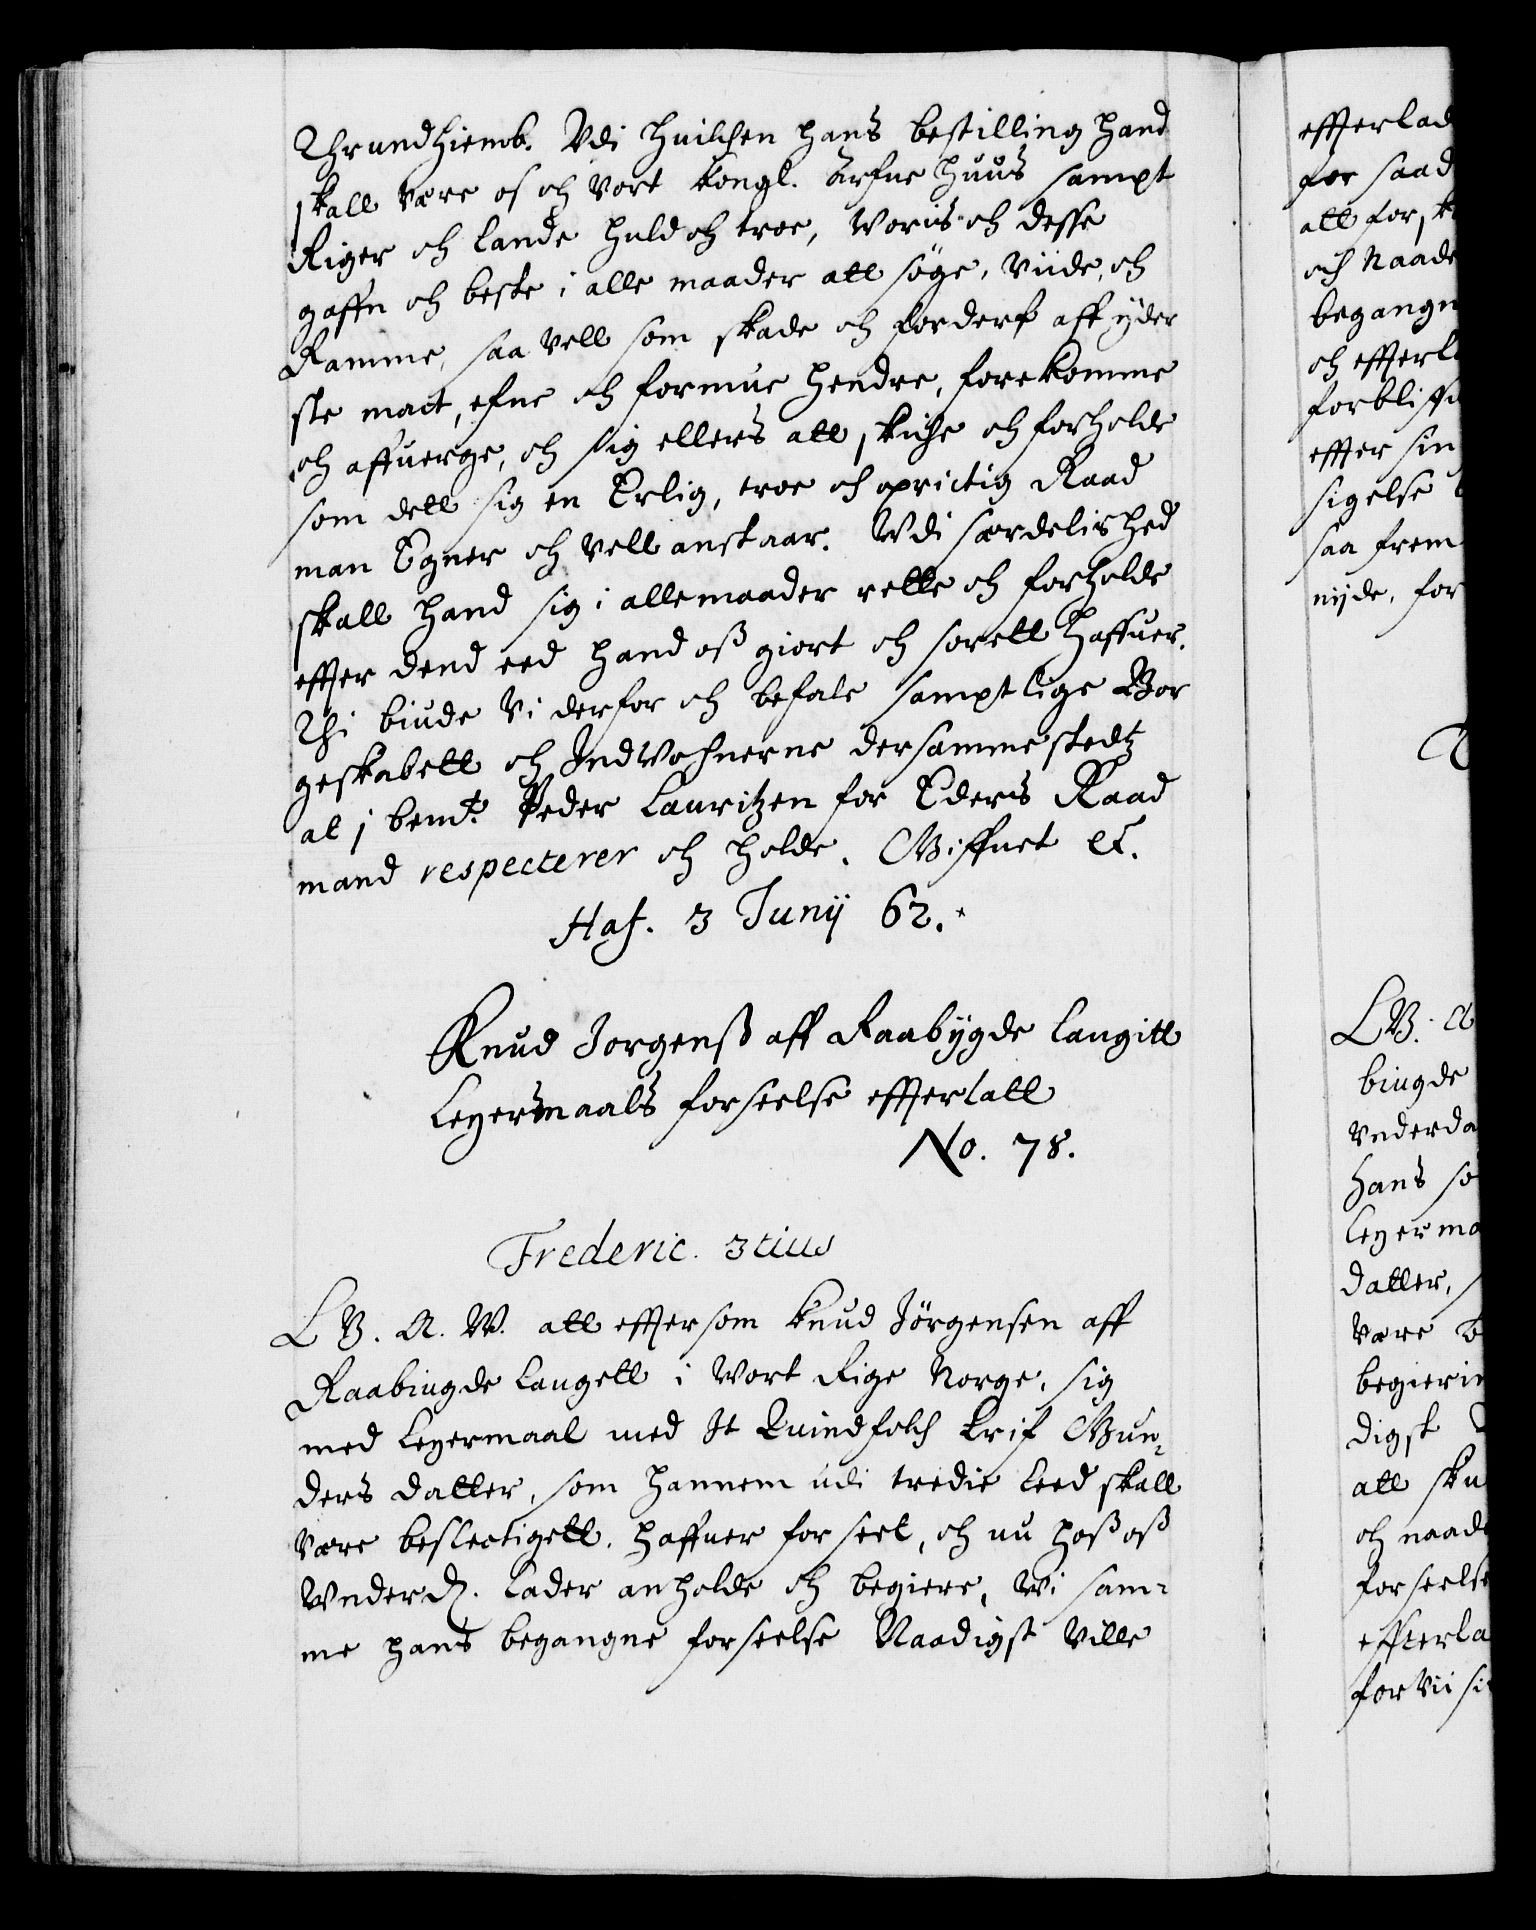 Thrundhiemb. Vdi huilchen hans bestilling hand
skall være os och vort kongl. Arfue huus sampt
Riger och Lande huld och troe, woris och desse
gaffn och beste i alle maader att søge, viide, och
Ramme, saa vell som skade och forderf aff yder
ste mact, efne och formue hendre, forekomme
och affuerge, och sig ellers att skiche och forholde
som dett sig en Erlig, troe och oprictig Raad
man Egner och vell anstaar. Wdi særdelished
skall hand sig i alle maader rette och forholde
effter dend eed hand oß giort och sorett haffuer.
Thi biude Vi derfor och befale samptlige Bor
geskabett och Indvohnerne dersammestedtz
at i bemt. Peder Lauritzen for Eders Raad
mand respecterer och holde. Giffuet etc.
Haf. 3 Junij 62.
Knud Jorgenß aff Raabygde Laugitt
Leyersmaals forseelse effterlatt
No. 78.
Frederic. 3tius
L V. A. W. att effter som Knud Jørgensen aff
Raabiugde Laugett i wort Rige Norge, sig
med Leyermaal med It Quindfolch Erif Gun-
ders datter, som hannem udi tredie Leed skall
være beslectigett, haffuer forseet, och nu hoß oß
Wnderd. Lader anholde och begiere, Wi sam-
me hans begangne forseelse Naadigst ville
effterlad
for saad
att for sk
och Naade
begangn
och effterl
forbliffu
effter sin
sigelse
saa frem
nyde, for
L V. A
biugde
Vnderda
hans so
Leyerma
datter,
være b
begierin
digst
att sku
och naad
forseelse
effterla
for vii si